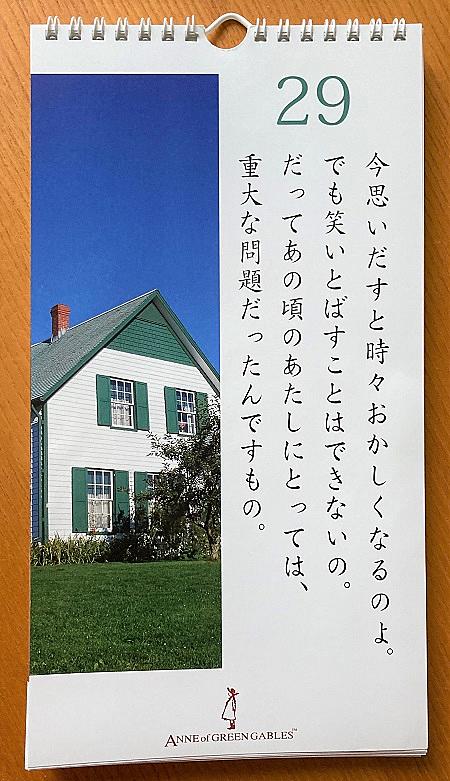 29
今思いだすと時々おかしくなるのよ。
でも笑いとばすことはできないの。
だってあの頃のあたしにとっては、
重大な問題だったんですもの。
ANNE of GREEN GABLES™